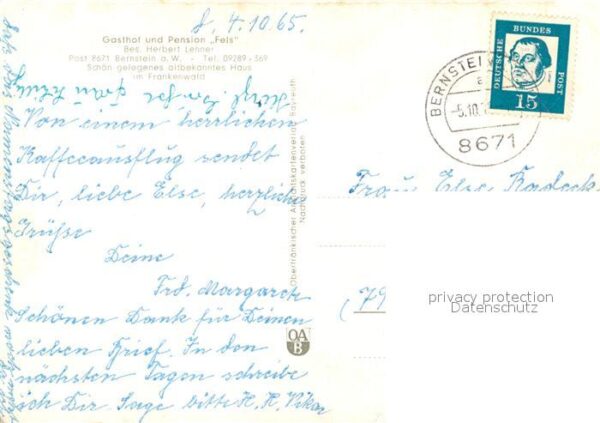 d. 4.10.65.
Gasthof und Pension „Fels"
Bes. Herbert Lehner
Post 8671 Bernstein a. W. - Tel. 09289 - 369
Schön gelegenes altbekanntes Haus
im Frankenwald
Von einem herrlichen
Kaffeeausflug sendet
Dir, liebe Else, herzliche
Grüße
Deine
Frd. Margarete
Schönen Dank für Deinen
lieben Brief. In den
nächsten Tagen schreibe
ich Dir. Sage bitte H. H. Vikar
Oberfränkischer Ansichtskartenverlag Bayreuth
Nachdruck verboten
OA
B
BERNSTEIN
a
-5.10.
8671
DEUTSCHE BUNDES POST
15
Frau Else Radeck
(79
privacy protection
Datenschutz